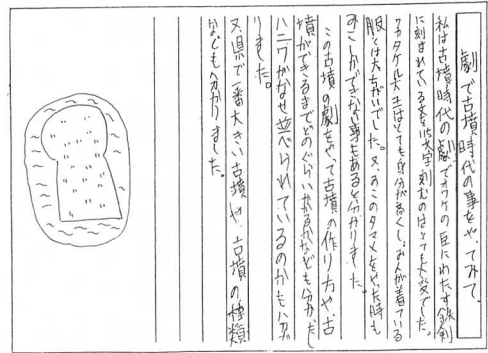 劇で古墳時代の事をやってみて、
私は古墳時代の劇でオワケの臣にわたす鉄剣
に刻まれている文を115文字刻むのはとても大変でした。
ワカタケル大王はとても身分が高くし、みんが着ている
服とは大ちがいでした。又、おこのタマメをやった時も
みこしかできない事もあると分かりました。
この古墳の劇をやって古墳の作り方や、古
墳ができるまでどのぐらいかかるかなども分かだし
ハニワがなぜ並べられているのかもハガ
りました。
又、県で一番大きい古墳や、古墳の種類
なども分かりました。